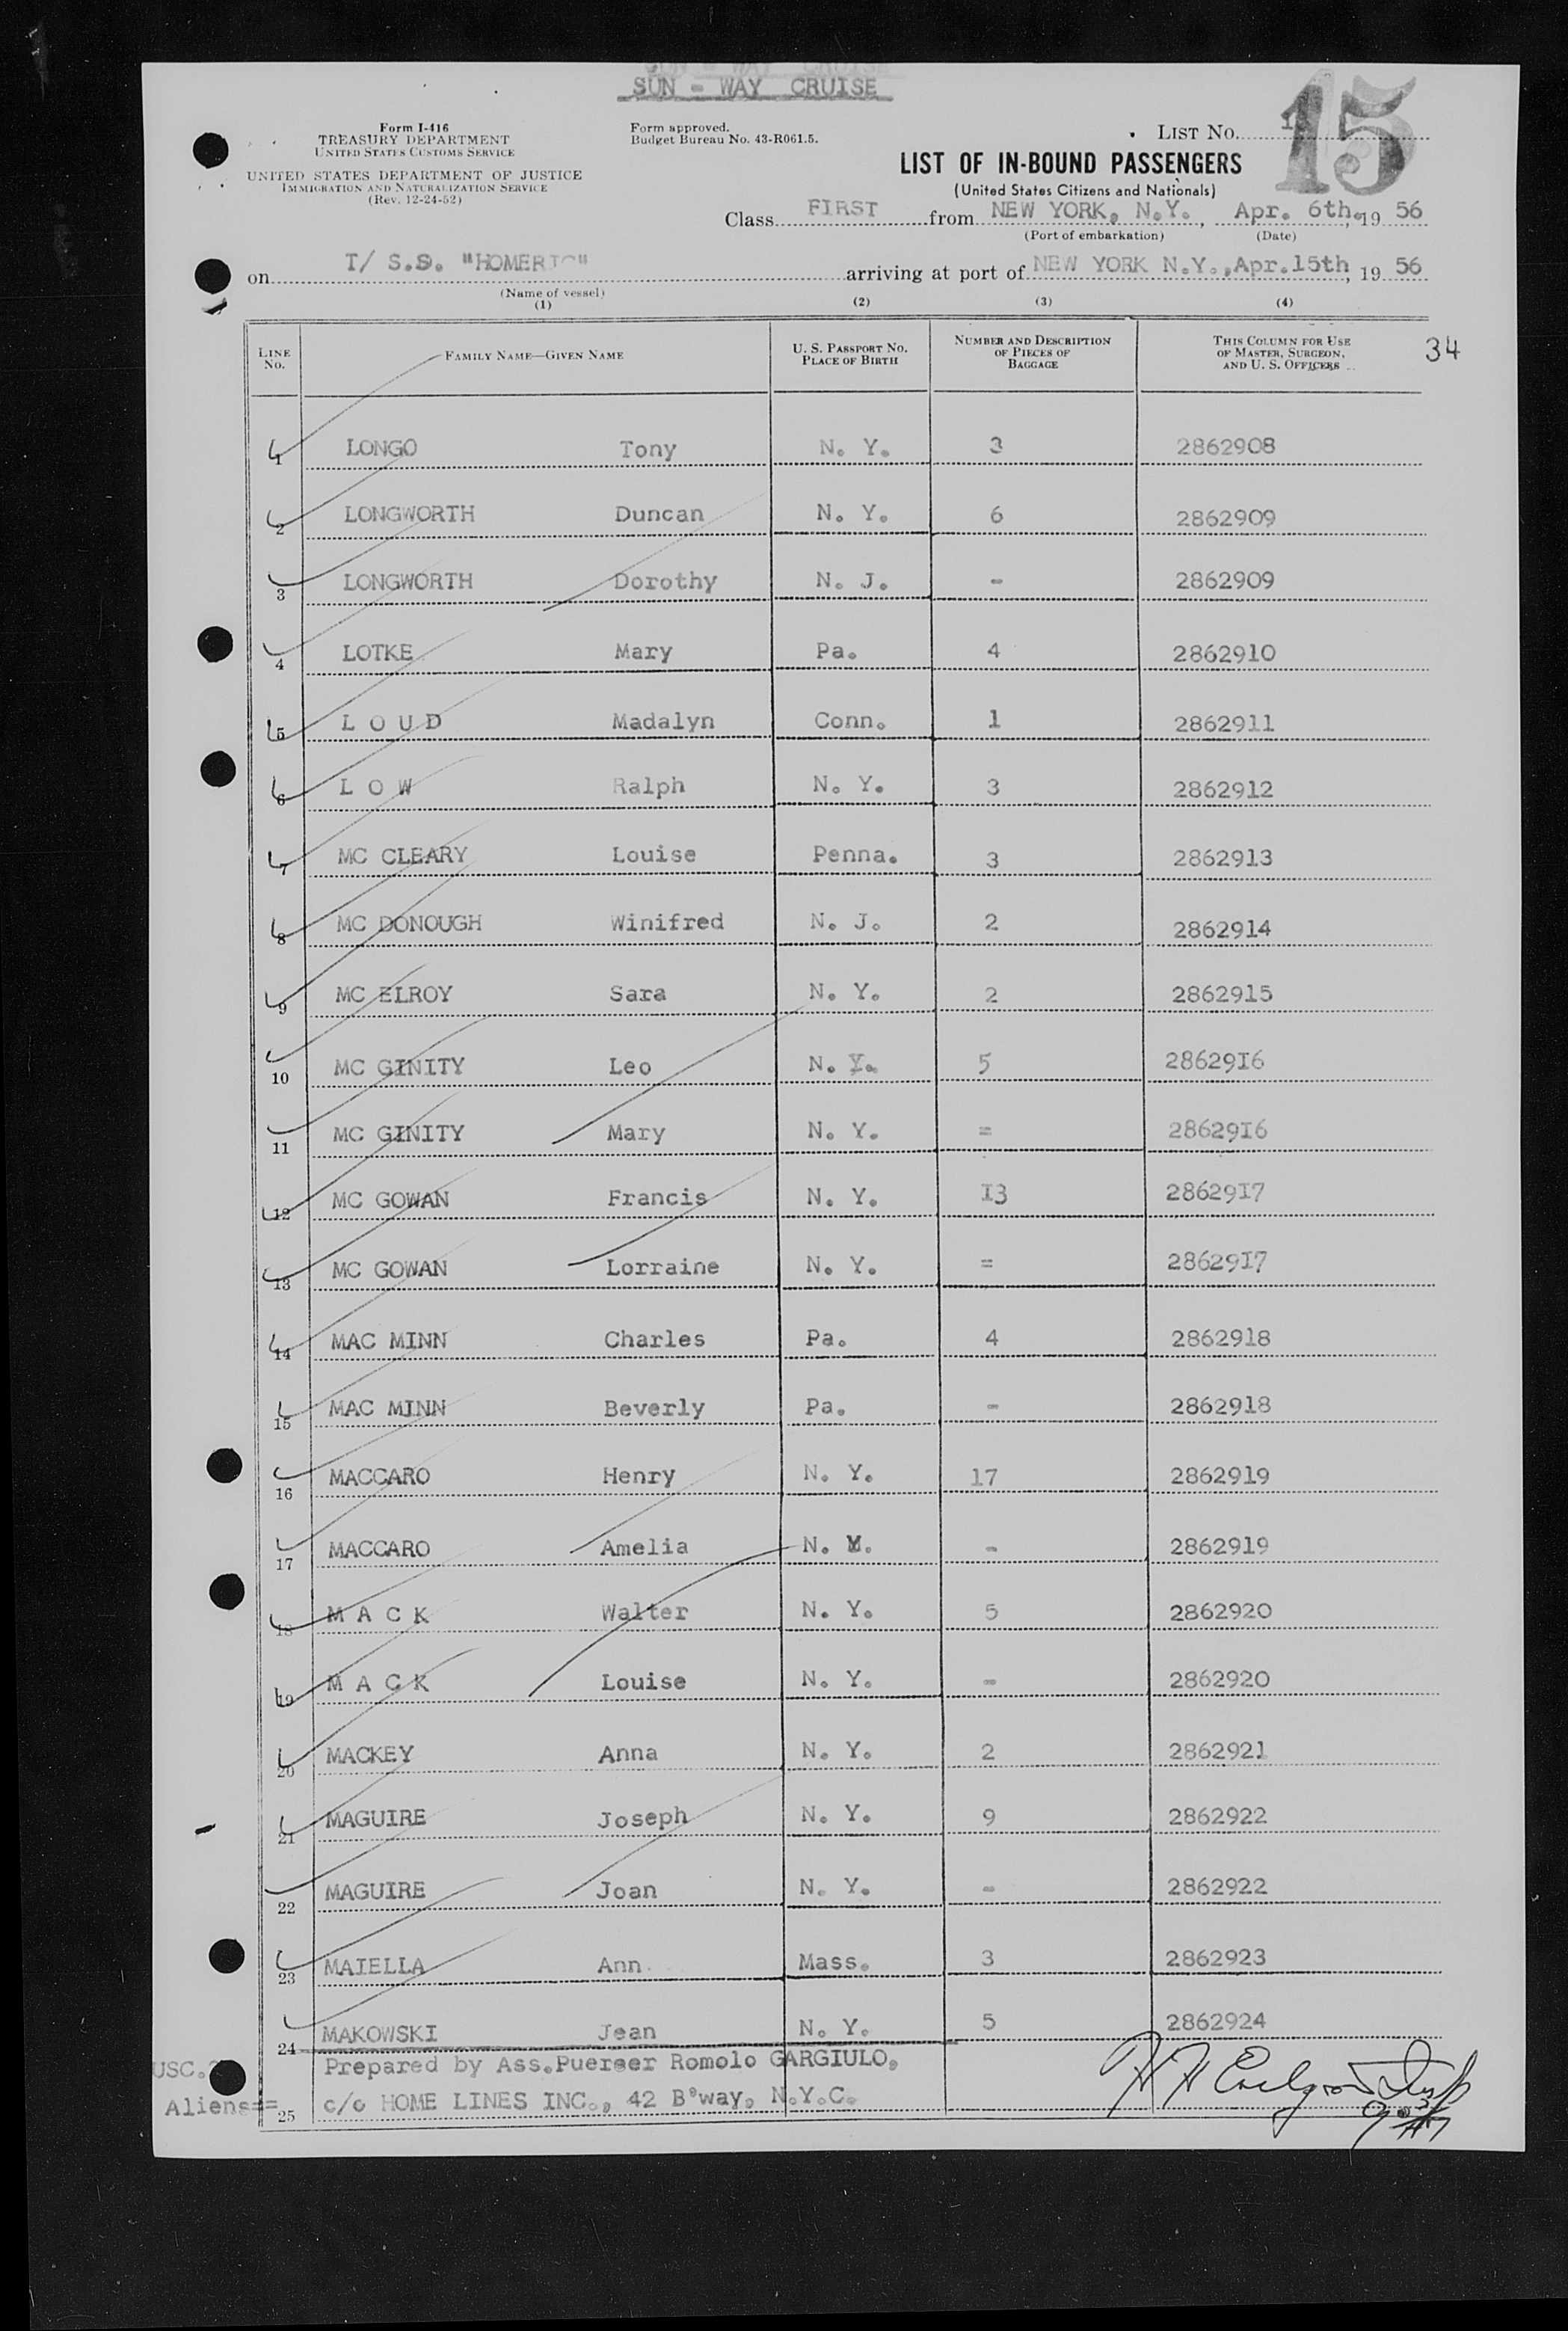 SUN - WAY CRUISE
Form I-416
TREASURY DEPARTMENT
UNITED STATES CUSTOMS SERVICE
UNITED STATES DEPARTMENT OF JUSTICE
IMMIGRATION AND NATURALIZATION SERVICE
(Rev. 12-24-52)
Form approved.
Budget Bureau No. 43-R061.5.
LIST No. 15
LIST OF IN-BOUND PASSENGERS
(United States Citizens and Nationals)
Class FIRST from NEW YORK, N.Y., Apr. 6th, 19 56
(Port of embarkation) (Date)
on T/ S.S. "HOMERIC" arriving at port of NEW YORK N.Y., Apr.15th, 19 56
(Name of vessel)
(1) (2) (3) (4)
LINE No. FAMILY NAME—GIVEN NAME U. S. PASSPORT No. PLACE OF BIRTH NUMBER AND DESCRIPTION OF PIECES OF BAGGAGE THIS COLUMN FOR USE OF MASTER, SURGEON, AND U. S. OFFICERS 34
1 LONGO Tony N. Y. 3 2862908
2 LONGWORTH Duncan N. Y. 6 2862909
3 LONGWORTH Dorothy N. J. - 2862909
4 LOTKE Mary Pa. 4 2862910
5 L O U D Madalyn Conn. 1 2862911
6 L O W Ralph N. Y. 3 2862912
7 MC CLEARY Louise Penna. 3 2862913
8 MC DONOUGH Winifred N. J. 2 2862914
9 MC ELROY Sara N. Y. 2 2862915
10 MC GINITY Leo N. Y. 5 2862916
11 MC GINITY Mary N. Y. = 2862916
12 MC GOWAN Francis N. Y. I3 2862917
13 MC GOWAN Lorraine N. Y. = 2862917
14 MAC MINN Charles Pa. 4 2862918
15 MAC MINN Beverly Pa. - 2862918
16 MACCARO Henry N. Y. 17 2862919
17 MACCARO Amelia N. Y. - 2862919
18 M A C K Walter N. Y. 5 2862920
19 M A C K Louise N. Y. - 2862920
20 MACKEY Anna N. Y. 2 2862921
21 MAGUIRE Joseph N. Y. 9 2862922
22 MAGUIRE Joan N. Y. - 2862922
23 MAIELLA Ann Mass. 3 2862923
24 MAKOWSKI Jean N. Y. 5 2862924
USC. Prepared by Ass.Puerser Romolo GARGIULO,
Aliens== 25 c/o HOME LINES INC., 42 B'way, N.Y.C.